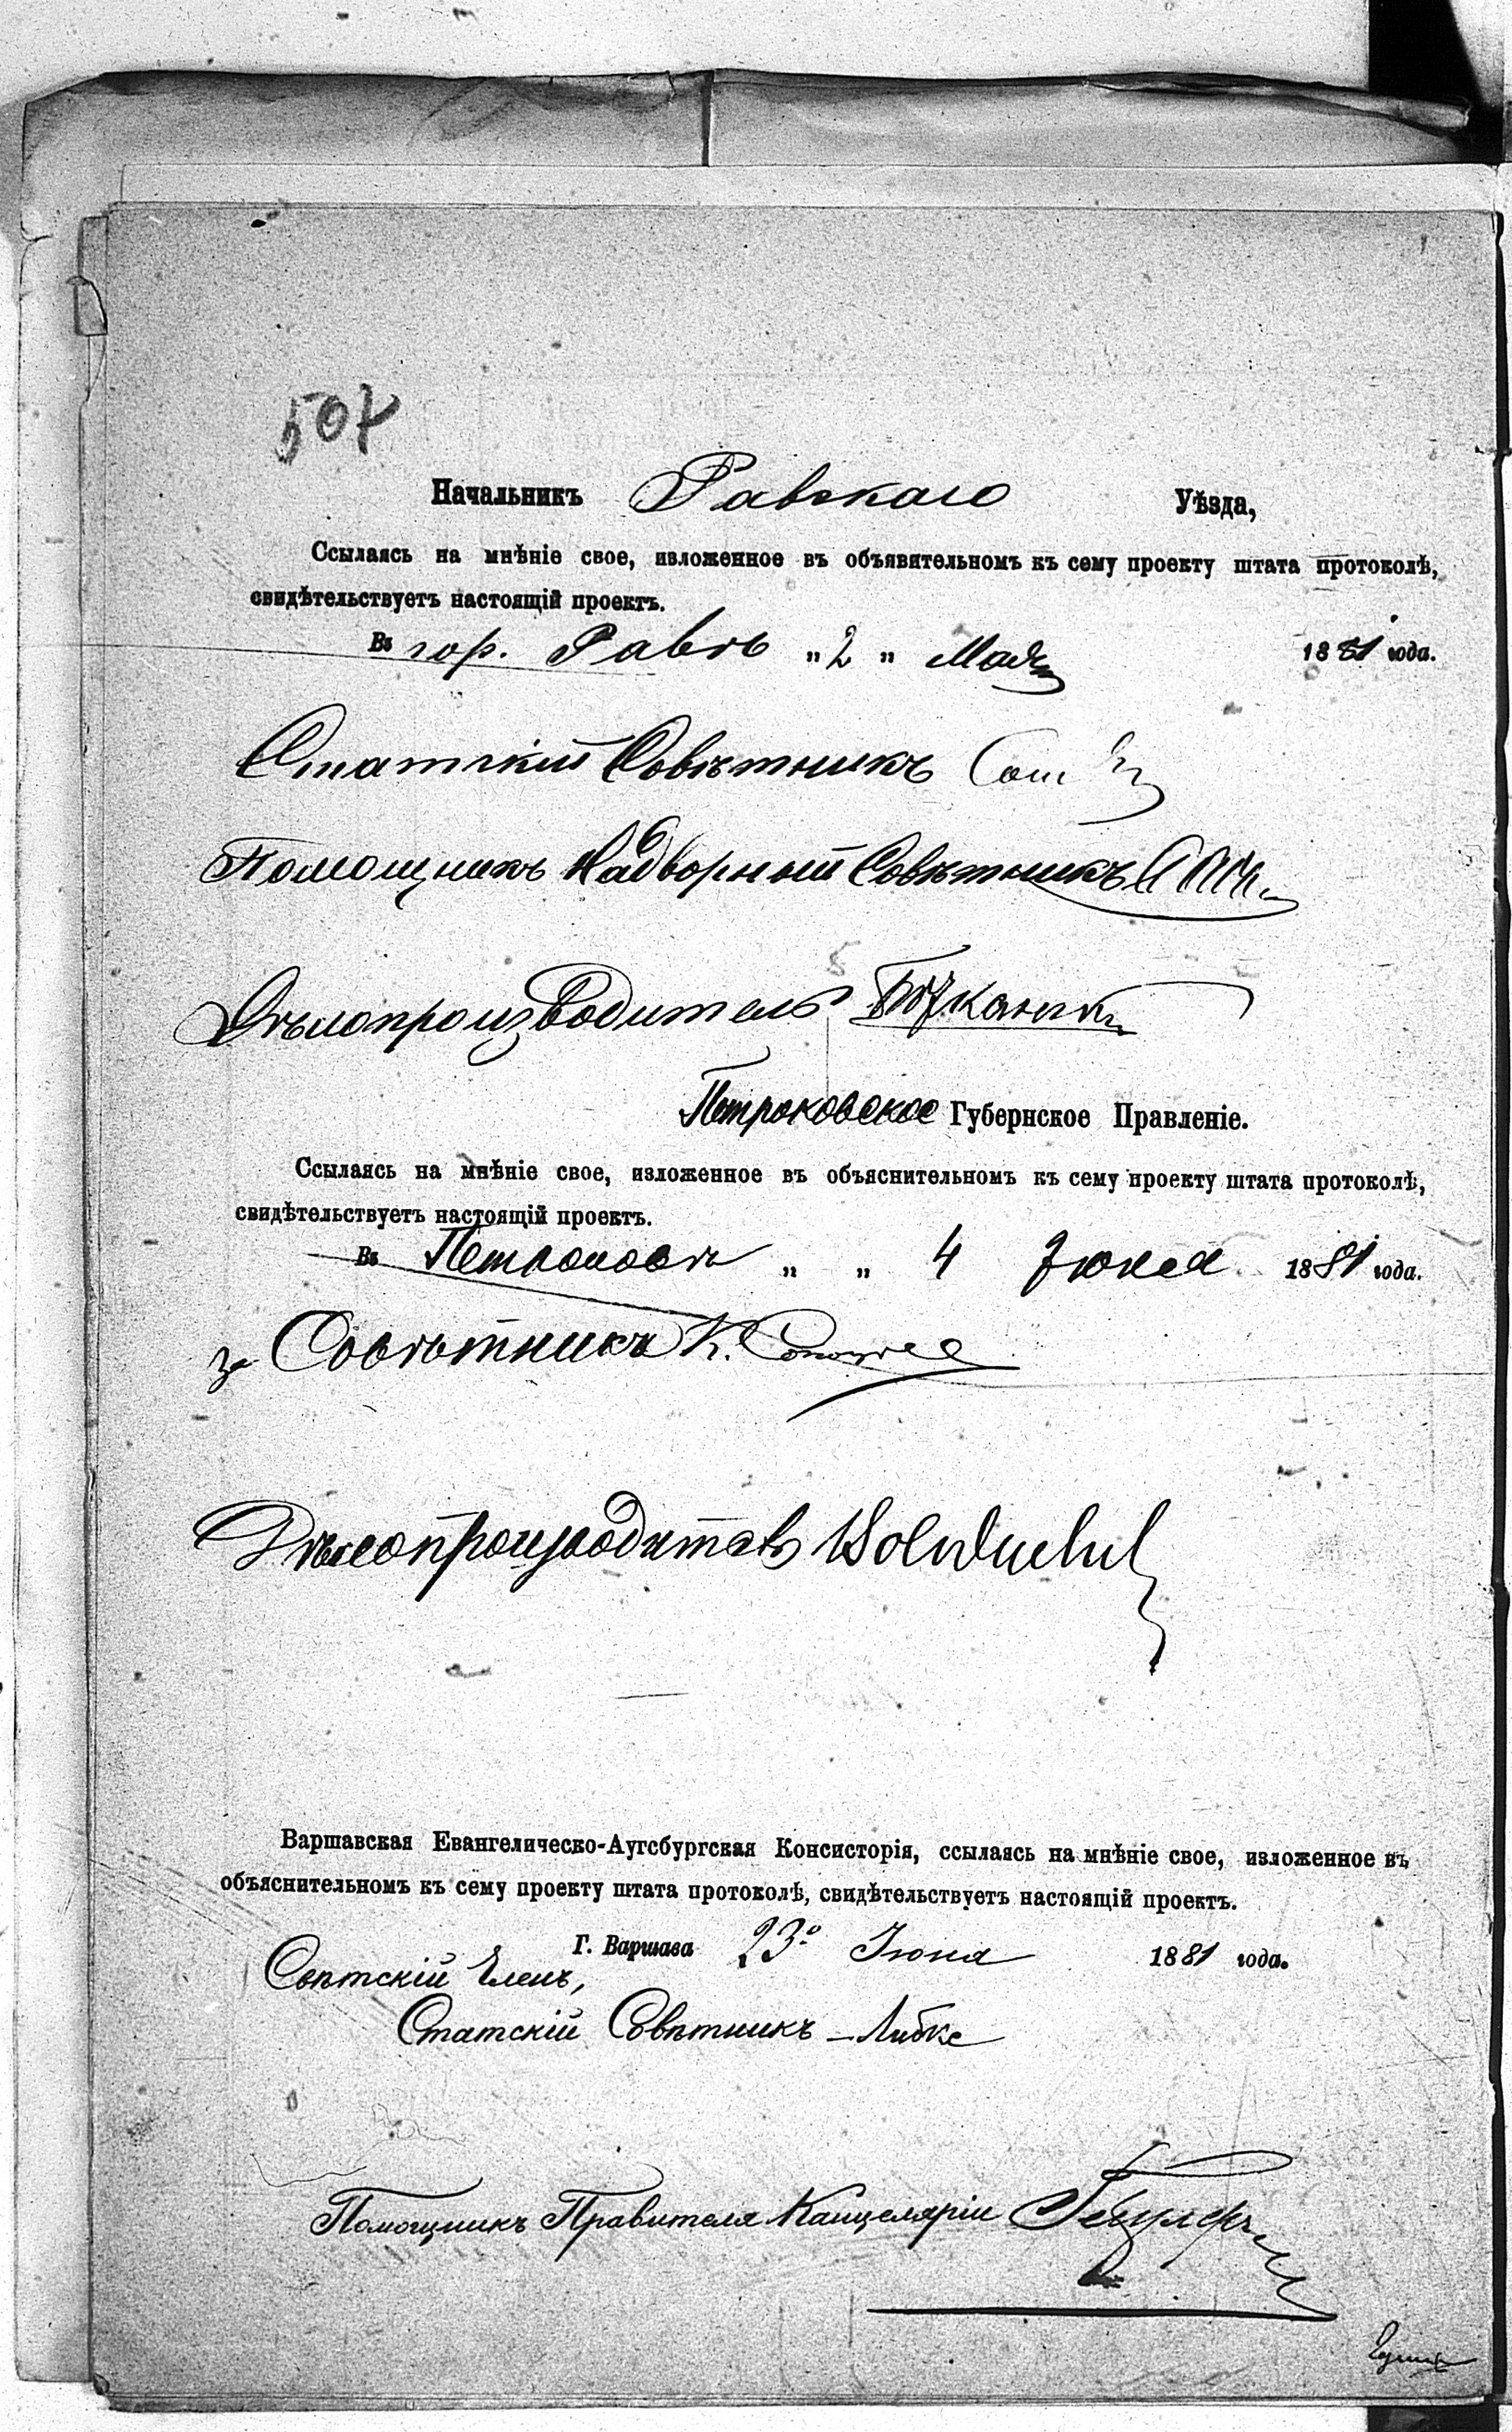 507
Начальникъ Равскаго Уѣзда,
Ссылаясь на мнѣніе свое, изложенное въ объявительномъ къ сему проекту штата протоколѣ,
свидѣтельствуетъ настоящій проектъ.
Въ гор. Равѣ „2„ Мая 1881 года.
Статскій Совѣтникъ
Помощникъ Надворный Совѣтникъ
Дѣлопроизводитель
Петроковское Губернское Правленіе.
Ссылаясь на мнѣніе свое, изложенное въ объяснительномъ къ сему проекту штата протоколѣ,
свидѣтельствуетъ настоящій проектъ.
Въ Петроковѣ „ „ 4 Іюня 1881 года.
за Совѣтника К.
Дѣлопроизводитель
Варшавская Евангелическо-Аугсбургская Консисторія, ссылаясь на мнѣніе свое, изложенное въ
объяснительномъ къ сему проекту штата протоколѣ, свидѣтельствуетъ настоящій проектъ.
Г. Варшава 23го Іюня 1881 года.
Свѣтскій Членъ,
Статскій Совѣтникъ – Либке
Помощникъ Правителя Канцеляріи